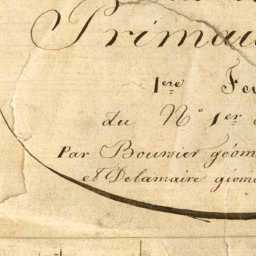 Primau
1ere Feu
du N° 1er
Par Bournier géom
et Delamaire géom